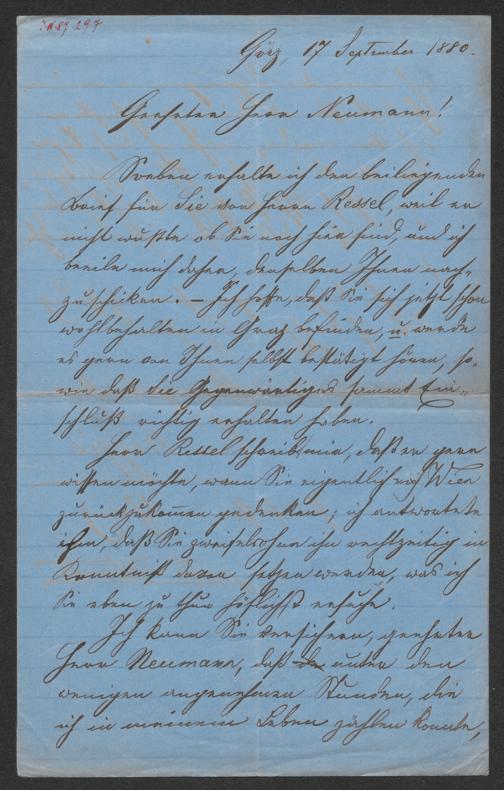 Görz, 17 September 1880.
Geehrter Herr Neumann!
Soeben erhalte ich den beiliegenden
Brief für Sie von Herrn Ressel, weil er
nicht wußte ob Sie noch hier sind, und ich
beeile mich daher, denselben Ihnen nach-
zuschicken. – Ich hoffe, daß Sie sich jetzt schon
wohlbehalten in Graz befinden, u. werde
es gern von Ihnen selbst bestätigt hören, so-
wie daß Sie Gegenwärtiges sammt Ein-
schluß richtig erhalten haben.
Herr Ressel schreibt mir, daß er gern
wissen möchte, wann Sie eigentlich nach Wien
zurückzukommen gedenken; ich antwortete
ihm, daß Sie zweifelsohne ihn rechtzeitig in
Kenntniß davon setzen werden, was ich
Sie eben zu thun höflichst ersuche.
Ich kann Sie versichern, geehrter
Herr Neumann, daß unter den
wenigen angenehmen Stunden, die
ich in meinem Leben zählen konnte,